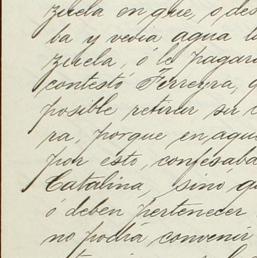 zuela en que, o des
ba y vedia agua la
zuela, ó le pagara
contestó Ferreira, q
posible retirar su
ra, porque en aqu
por esto, confesaba
Catalina, sinó q
ó deben pertenecer
no podrá convenir